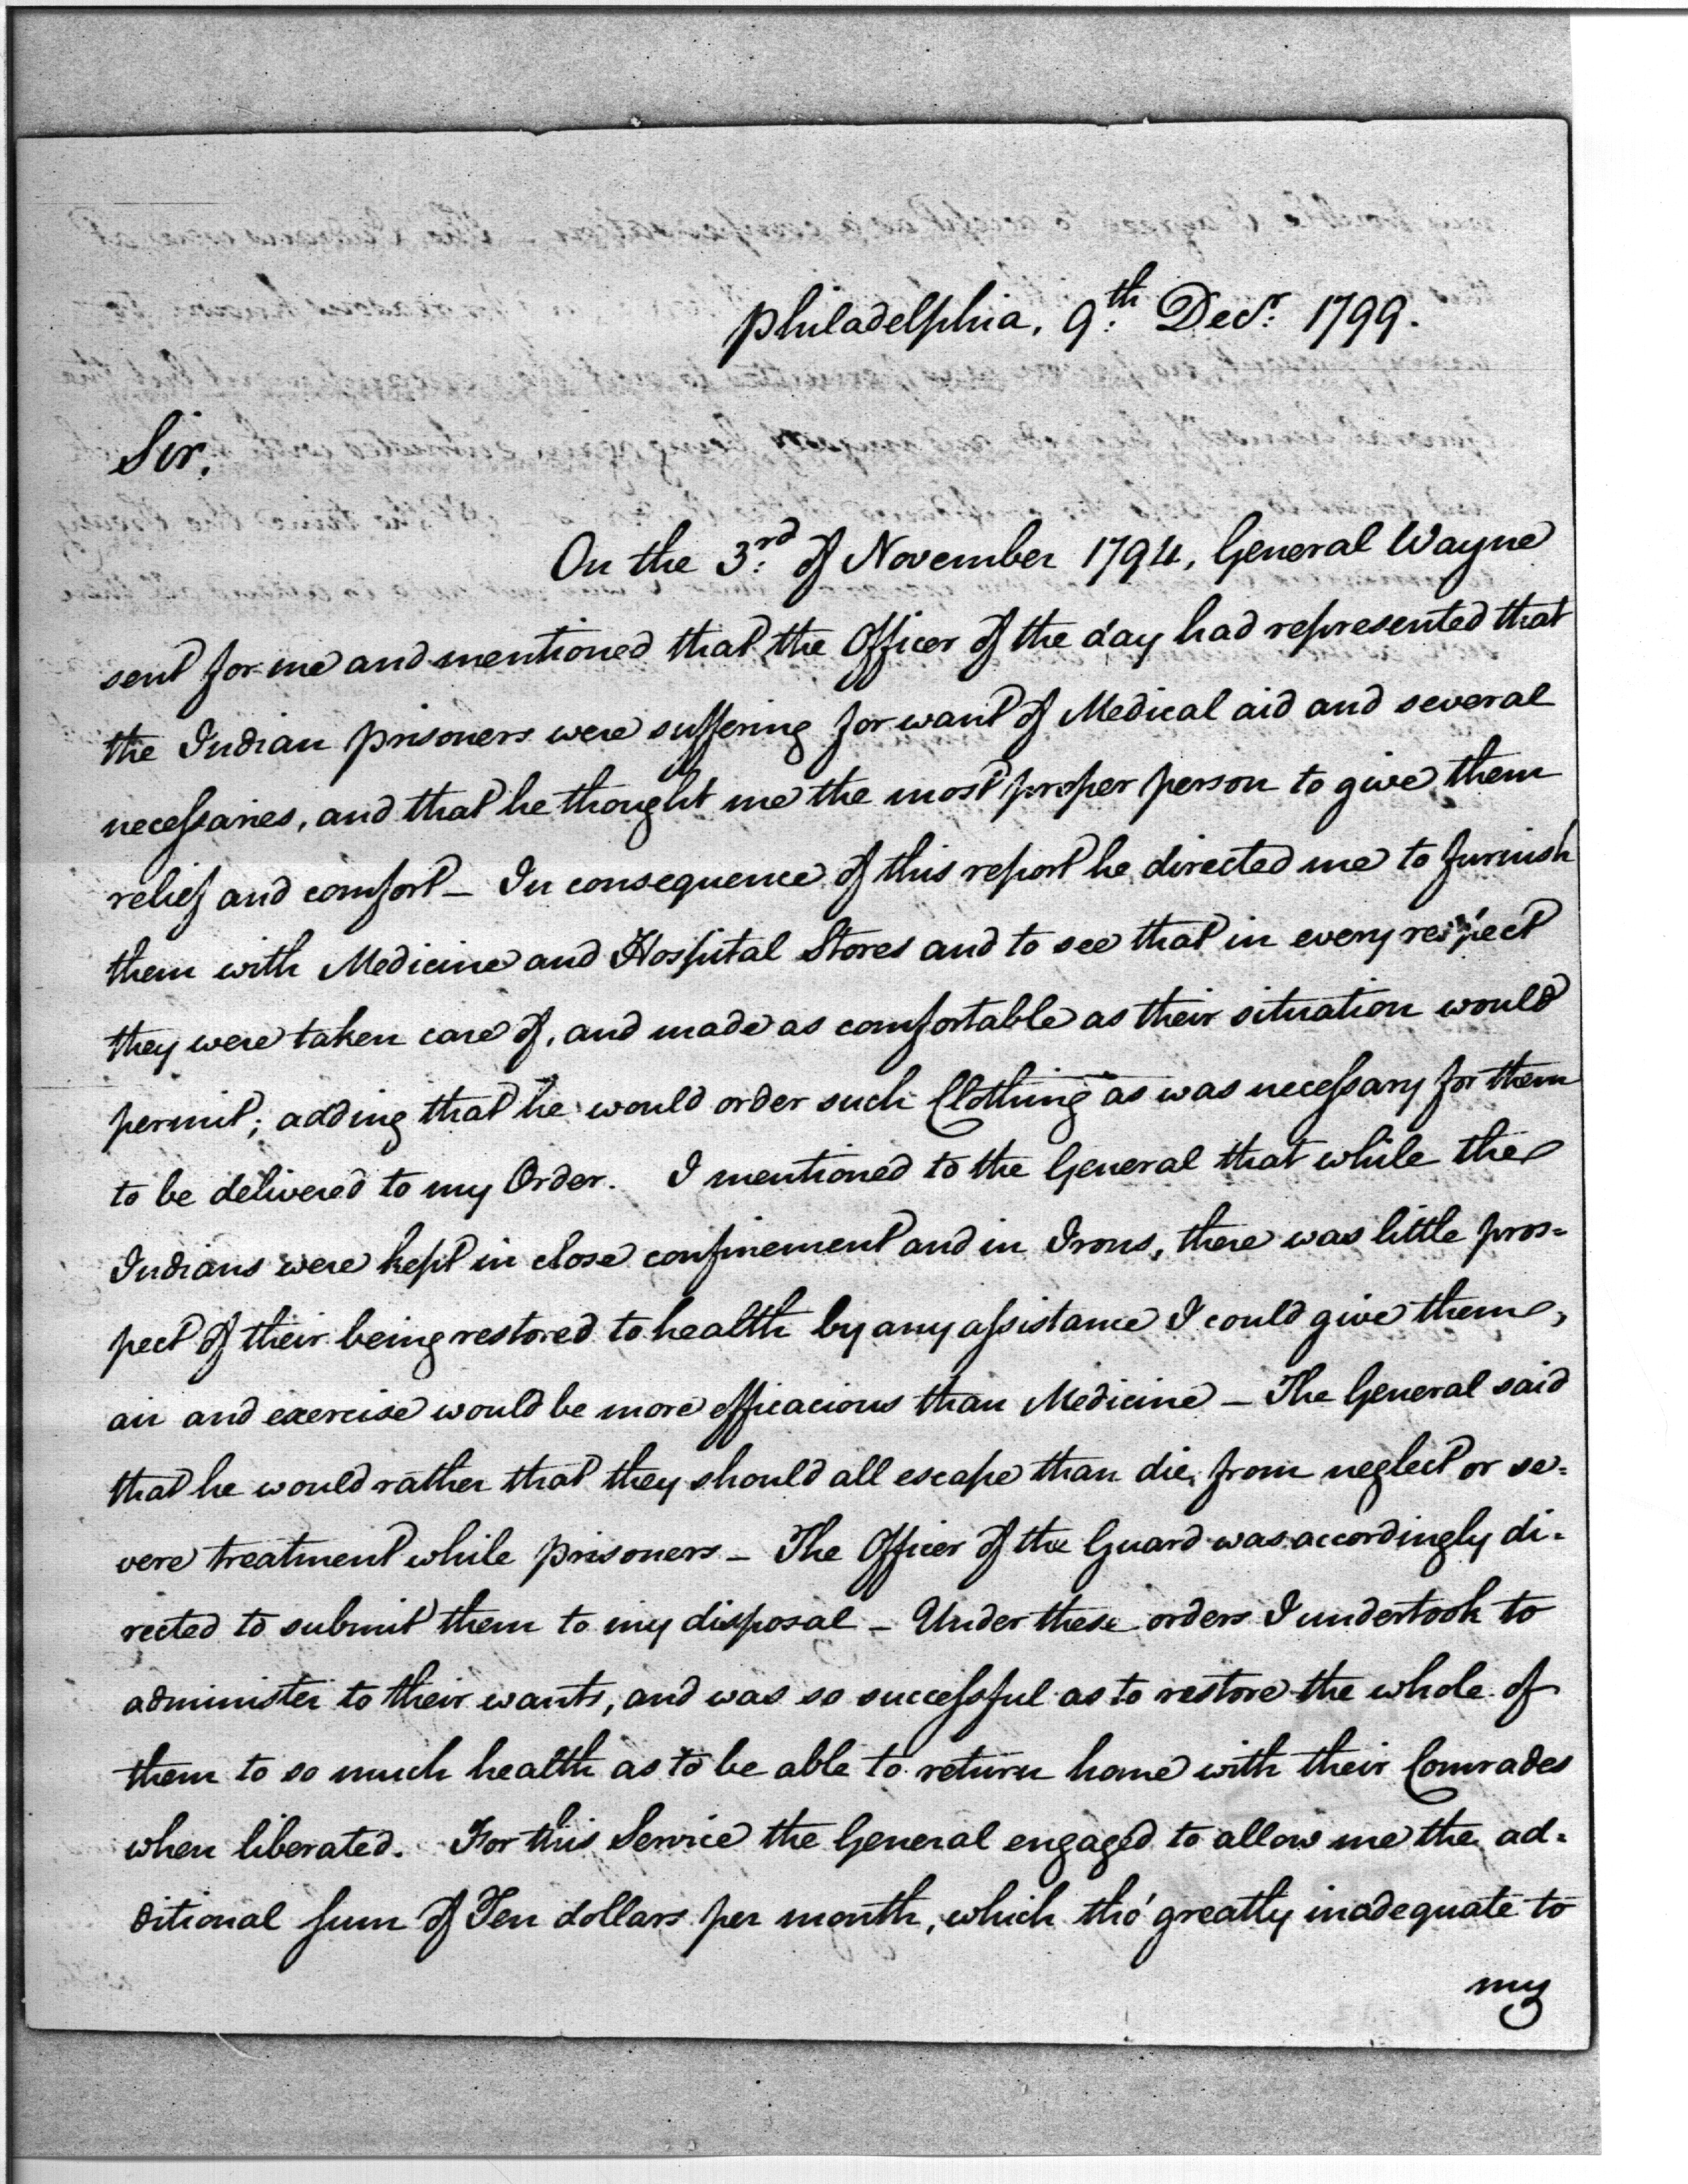 Philadelphia, 9th. Decr: 1799.
Sir,
On the 3rd. of November 1794, General Wayne
sent for me and mentioned that the Officer of the day had represented that
the Indian prisoners were suffering for want of Medical aid and several
necessaries, and that he thought me the most proper person to give them
relief and comfort – In consequence of this report he directed me to furnish
them with Medicine and Hospital Stores and to see that in every respect
they were taken care of, and made as comfortable as their situation would
permit; adding that he would order such Clothing as was necessary for them
to be delivered to my Order. I mentioned to the General that while the
Indians were kept in close confinement and in Irons, there was little pros=
pect of their being restored to health by any assistance I could give them,
air and exercise would be more efficacious than Medicine – The General said
that he would rather that they should all escape than die, from neglect or se=
vere treatment while prisoners – The Officer of the Guard was accordingly di=
rected to submit them to my disposal – Under these orders I undertook to
administer to their wants, and was so successful as to restore the whole of
them to so much health as to be able to return home with their Comrades
when liberated. For this Service the General engaged to allow me the ad=
ditional sum of Ten dollars per month, which tho' greatly inadequate to
my